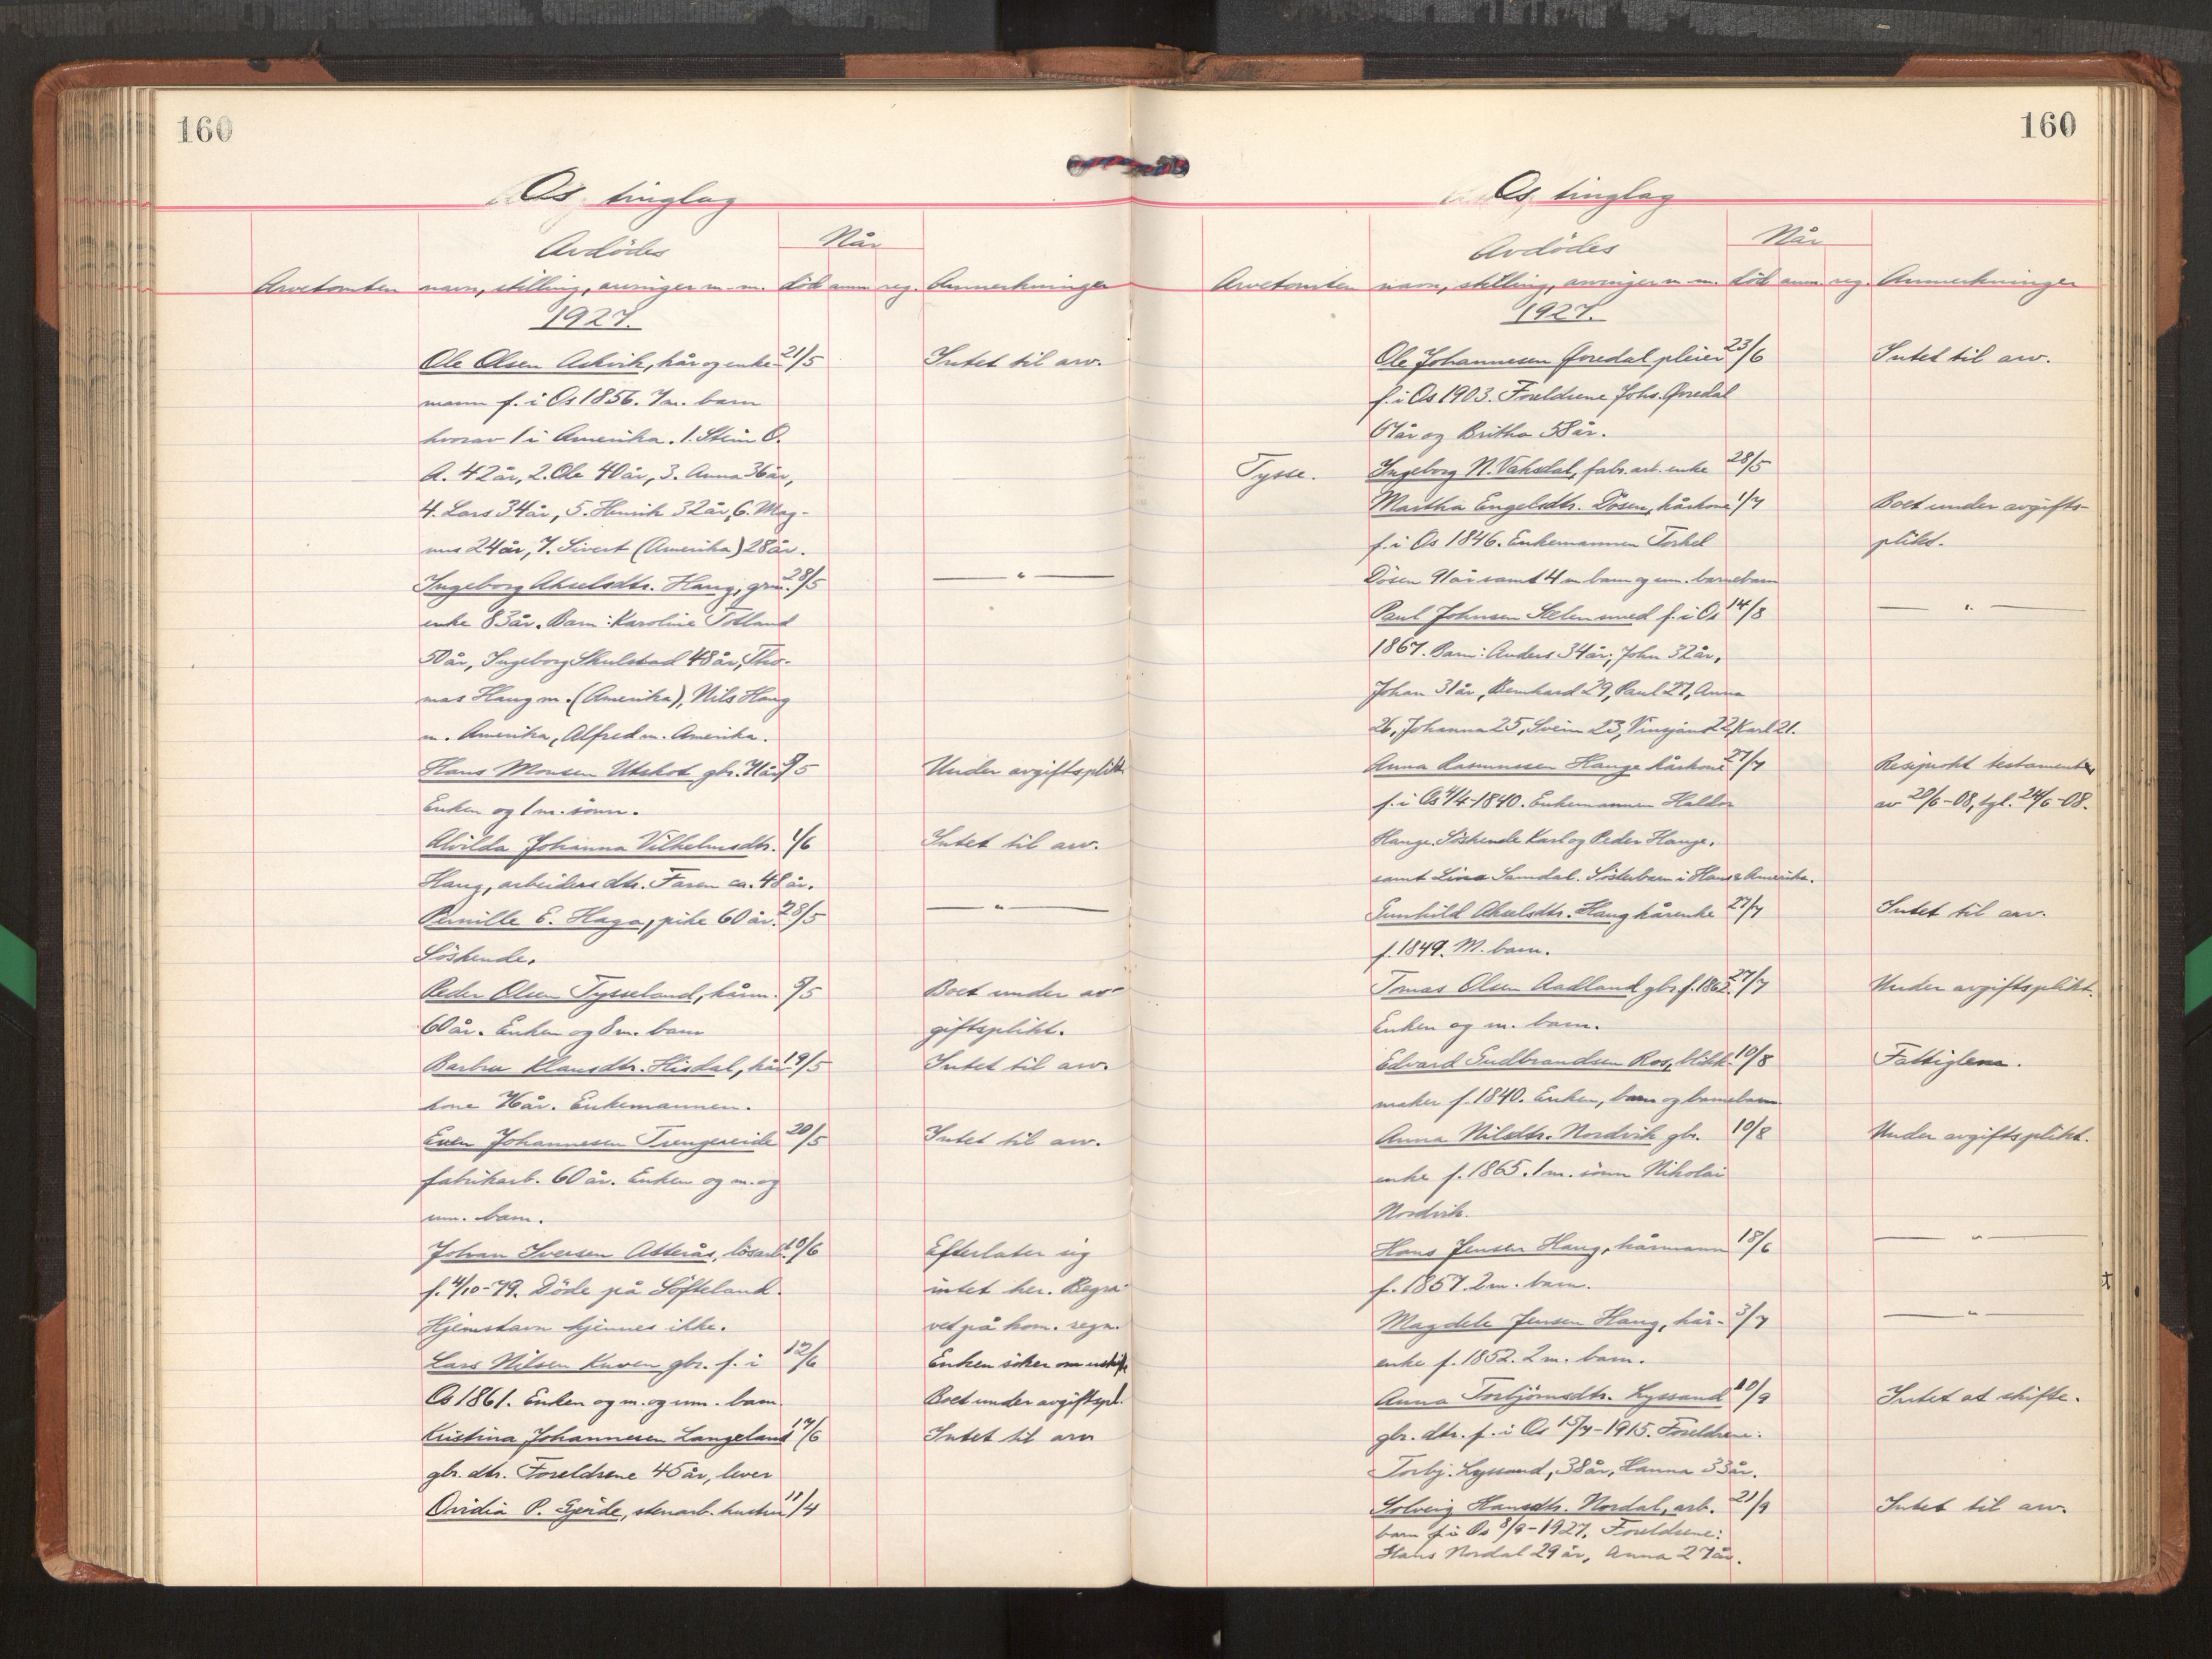 160
Os tinglag
Avdödes
Når
Arvetomten navn, stilling, arvinger m.m. död anm reg. Anmerkninger
1927.
Ole Olsen Askvik, kår og enke- 21/5 Intet til arv.
mann f. i Os 1856. 7 m. barn
hvorav 1 i Amerika. 1. Stein O.
A. 42 år, 2. Ole 40 år, 3. Anna 36 år,
4. Lars 34 år, 5. Henrik 32 år, 6. Mag-
nus 24 år, 7. Sivert (Amerika) 28 år.
Ingeborg Akselsdtr. Haug, grm. 28/5 — " —
enke 83 år. Barn: Karoline Totland
50 år, Ingeborg Skulstad 48 år, Tho-
mas Haug m. (Amerika), Nils Haug
m. Amerika, Alfred m. Amerika.
Hans Monsen Utskot gbr. 71 år 9/5 Under avgiftsplikt
Enken og 1 m. sönn.
Alvilda Johanna Vilhelmsdtr. 1/6 Intet til arv.
Haug, arbeiders dtr. Faren ca. 48 år.
Pernille E. Haga, pike 60 år. 28/5 — " —
Söskende.
Peder Olsen Tysseland, kårm. 9/5 Boet under av-
60 år. Enken og 8 m. barn giftsplikt.
Barbra Klausdtr. Hisdal, kår- 19/5 Intet til arv.
kone 76 år. Enkemannen.
Even Johannesen Trengereide 20/5 Intet til arv.
fabrikarb. 60 år. Enken og m. og
um. barn.
Johan Iversen Atterås, lösarb. 10/6 Efterlater sig
f. 4/10-79. Döde på Söfteland. intet her. Begra-
Hjemstavn kjennes ikke. vet på kom. regn.
Lars Nilsen Kuven gbr. f. i 12/6 Enken söker om uskifte
Os 1861. Enken og m. og um. barn. Boet under avgiftspl.
Kristina Johannesen Langeland 17/6 Intet til arv
gbr. dtr. Foreldrene 45 år, lever
Ovidia P. Gjerde, stenarb. hustru 11/4
160
Os tinglag
Avdödes
Når
Arvetomten navn, stilling, arvinger m. m. död anm. reg. Anmerkninger
1927.
Ole Johannesen Övredal pleier 23/6 Intet til arv.
f. i Os 1903. Foreldrene Johs. Övredal
67 år og Britha 58 år.
Tysse. Ingeborg N. Vaksdal, fabr. arb. enke 28/5
Martha Engelsdtr. Dösen, kårkone 1/7 Boet under avgifts-
f. i Os 1846. Enkemannen Torkel plikt.
Dösen 91 år samt 4 m barn og um. barnebarn
Paul Johnsen Sælen smed f. i Os 14/8 — " —
1867. Barn: Anders 34 år, John 32 år,
Johan 31 år, Bernhard 29, Paul 27, Anna
26, Johanna 25, Svein 23, Vinsjans 22, Karl 21.
Anna Rasmussen Hauge kårkone 27/7 Resiprokt testamente
f. i Os 4/4-1840. Enkemannen Haldor av 20/6-08, tgl. 24/6-08.
Hauge. Söskende Karl og Peder Hauge,
samt Lina Samdal. Södsterbarn i Haus & Amerika.
Gunhild Akselsdtr. Haug kårenke 27/7 Intet til arv.
f. 1849. M. barn.
Tomas Olsen Aadland gbr. f. 1862. 27/7 Under avgiftsplikt.
Enken og m. barn.
Edvard Gudbrandsen Ros, blikk- 10/8 Fattiglem.
maker f. 1840. Enken, barn og barnebarn
Anna Nilsdtr. Nordvik gbr. 10/8 Under avgiftsplikt.
enke f. 1865. 1 m. sönn Nikolai
Nordvik.
Hans Jensen Haug, kårmann 18/6 — " —
f. 1857. 2 m. barn.
Magdele Jensen Haug, kår- 3/7 — " —
enke f. 1852. 2 m. barn.
Anna Torbjörnsdtr. Lyssand 10/9 Intet at skifte.
gbr. dtr. f. i Os 15/7-1915. Foreldrene:
Torbj. Lyssand, 38 år, Hanna 33 år.
Solveig Hansdtr. Nordal, arb. 21/9 Intet til arv.
barn f. i Os 8/9-1927. Foreldrene:
Hans Nordal 29 år, Anna 27 år.